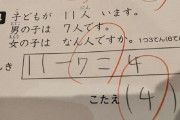 子どもが 11人 います。
男の子は 7人です。
女の子は なん人ですか。
しき 11-7=4
こたえ (4)